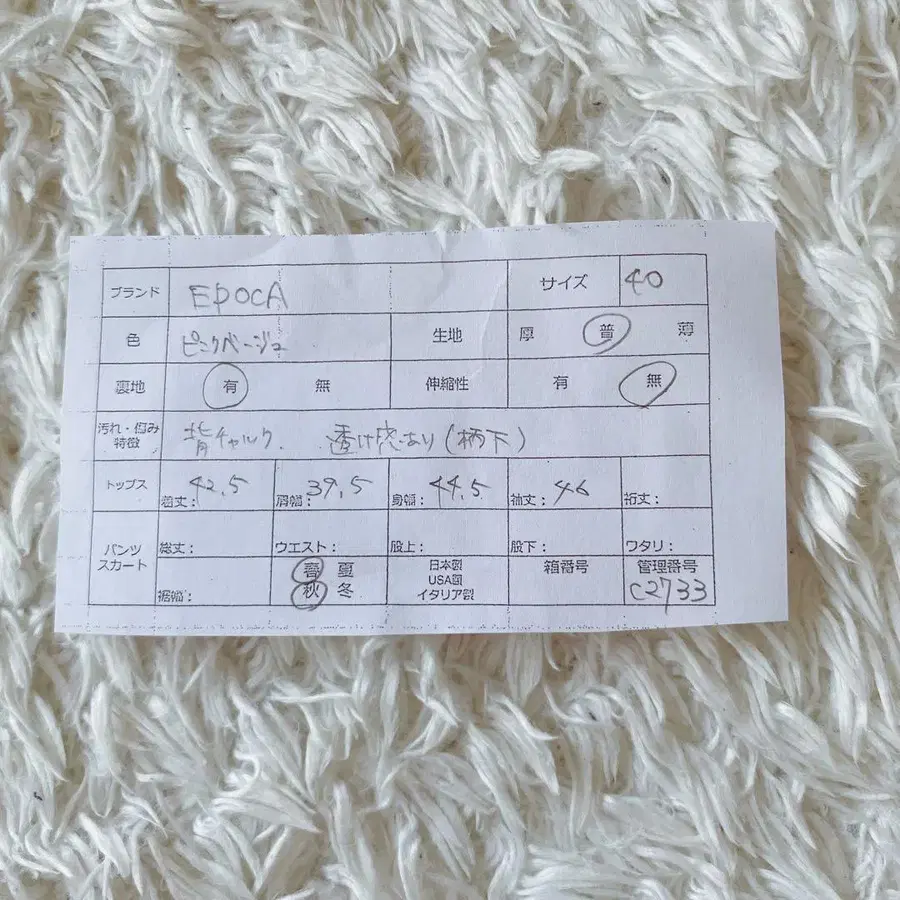 ブランド EPOCA サイズ 40
色 ピンクベージュ 生地 厚 普 薄
裏地 有 無 伸縮性 有 無
汚れ・傷み
特徴
背チャルク. 透け感あり(柄下)
トップス 着丈: 42.5 肩幅: 39.5 身幅: 44.5 袖丈: 46 裄丈:
パンツ
スカート
総丈: ウエスト: 股上: 股下: ワタリ:
裾幅:
春 夏
秋 冬
日本製
USA製
イタリア製
箱番号
管理番号
C2733